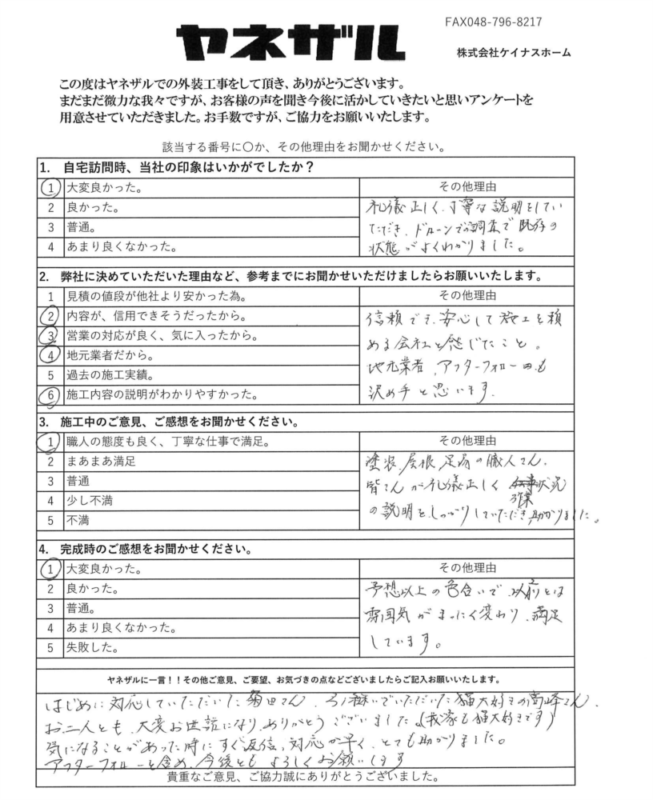 FAX048-796-8217
ヤネザル
株式会社ケイナスホーム
この度はヤネザルでの外装工事をして頂き、ありがとうございます。
まだまだ微力な我々ですが、お客様の声を聞き今後に活かしていきたいと思いアンケートを
用意させていただきました。お手数ですが、ご協力をお願いいたします。
該当する番号に〇か、その他理由をお聞かせください。
1. 自宅訪問時、当社の印象はいかがでしたか？
1 大変良かった。
2 良かった。
3 普通。
4 あまり良くなかった。
その他理由
礼儀正しく、丁寧な説明をしてい
ただき、ドローンでの調査で既存の
状態がよくわかりました。
2. 弊社に決めていただいた理由など、参考までにお聞かせいただけましたらお願いいたします。
1 見積の値段が他社より安かった為。
2 内容が、信用できそうだったから。
3 営業の対応が良く、気に入ったから。
4 地元業者だから。
5 過去の施工実績。
6 施工内容の説明がわかりやすかった。
その他理由
信頼でき、安心して施工を頼
める会社と感じたこと。
地元業者、アフターフォローも
決め手と思います。
3. 施工中のご意見、ご感想をお聞かせください。
1 職人の態度も良く、丁寧な仕事で満足。
2 まあまあ満足
3 普通
4 少し不満
5 不満
その他理由
塗装、屋根、足場の職人さん、
皆さんが礼儀正しく 作業状況
の説明をしっかりしていただき助かりました。
4. 完成時のご感想をお聞かせください。
1 大変良かった。
2 良かった。
3 普通。
4 あまり良くなかった。
5 失敗した。
その他理由
予想以上の色合いで、以前とは
雰囲気がまったく変わり、満足
しています。
ヤネザルに一言！！その他ご意見、ご要望、お気づきの点などございましたらご記入お願いいたします。
はじめに対応していただいた菊田さん、引き継いでいただいた猫大好きの高峰さん、
お二人とも、大変お世話になり、ありがとうございました（我家も猫大好きです）
気になることがあった時にすぐ返信、対応が早く、とても助かりました。
アフターフォローも含め、今後ともよろしくお願いします
貴重なご意見、ご協力誠にありがとうございました。